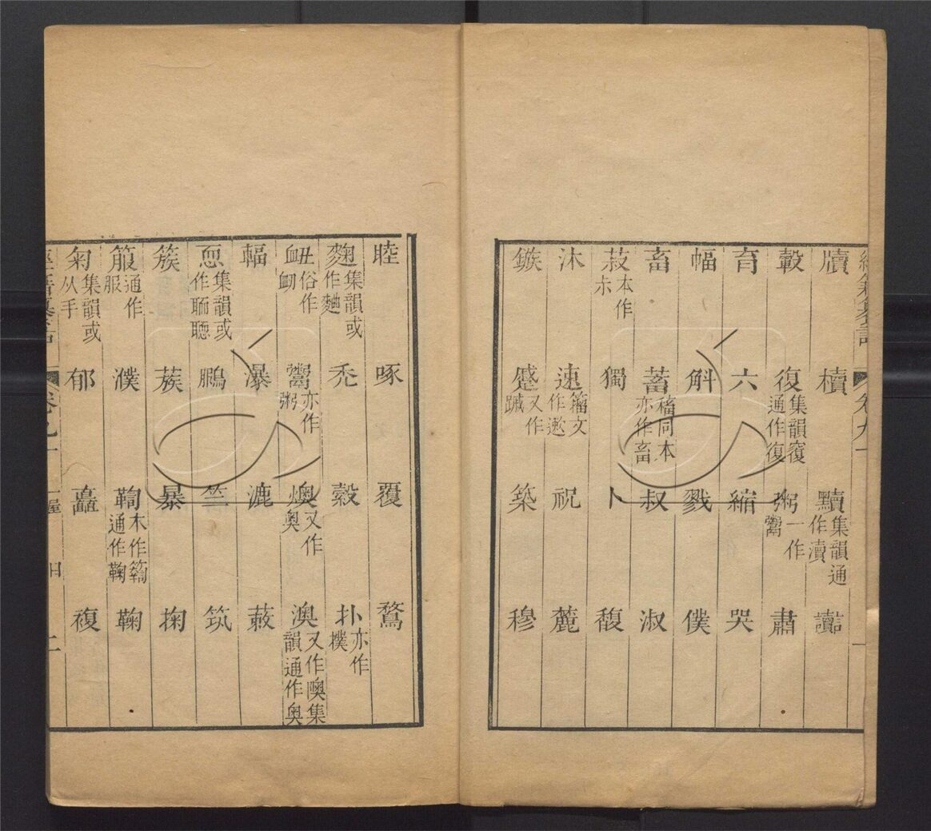 牘 櫝 黷集韻通作瀆 讟
轂 復集韻覆通作復 粥一作鬻 肅
育 六 縮 哭
幅 斛 戮 僕
畜 蓄稸同本亦作畜 叔 淑
菽本作尗 獨 卜 馥
沐 速籀文作遬 祝 麓
鏃 蹙又作蹴 築 穆
睦 啄 覆 鶩
麴集韻或作麯 禿 縠 扑亦作撲
衄俗作 鬻亦作粥 燠又作奧 澳又作隩集韻通作奧
輻 瀑 漉 蔌
恧集韻或作 鵩 竺 筑
簇 蔟 暴 掬
箙通作服 濮 通作鞠 鞠
匊集韻或从手 郁 矗 複